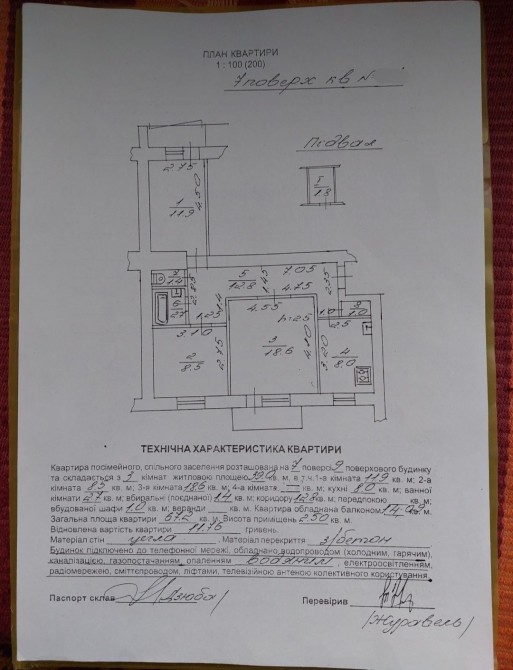 ПЛАН КВАРТИРИ
1 : 100 (200)
7 поверх кв №
Підвал
І
1.3
2.75
1
11.9
4.50
7
1.4
6
2.7
2.85
5
12.8
1.45
7.05
4.75
2.35
1.4
1.25
4.55
h=2.5
1.0
8
1.0
2.5
3.10
2
8.5
2.75
3
18.6
4.10
3.20
4
8.0
ТЕХНІЧНА ХАРАКТЕРИСТИКА КВАРТИРИ
Квартира посімейного, спільного заселення розташована на 7 поверсі 9 поверхового будинку
та складається з 3 кімнат житловою площею 39.0 кв. м, в т.ч.1-а кімната 11.9 кв. м; 2-а
кімната 8.5 кв. м; 3-я кімната 18.6 кв. м; 4-а кімната — кв. м; кухні 8.0 кв. м; ванної
кімнати 2.7 кв. м; вбиральні (поєднано) 1.4 кв. м; коридору 12.8 кв. м; передпокою кв. м;
вбудованої шафи 1.0 кв. м; веранди кв. м. Квартира обладнана балконом кв. м.
Загальна площа квартири кв. м. Висота приміщень 2.50 кв. м.
Відновлена вартість квартири гривень.
Матеріал стін цегла. Матеріал перекриття з/бетон
Будинок підключено до телефонної мережі, обладнано водопроводом (холодним, гарячим),
каналізацією, газопостачанням, опаленням водяним, електроосвітленням,
радіомережею, сміттєпроводом, ліфтами, телевізійною антеною колективного користування
Паспорт склав (Дзюба)
Перевірив
(Журавель)